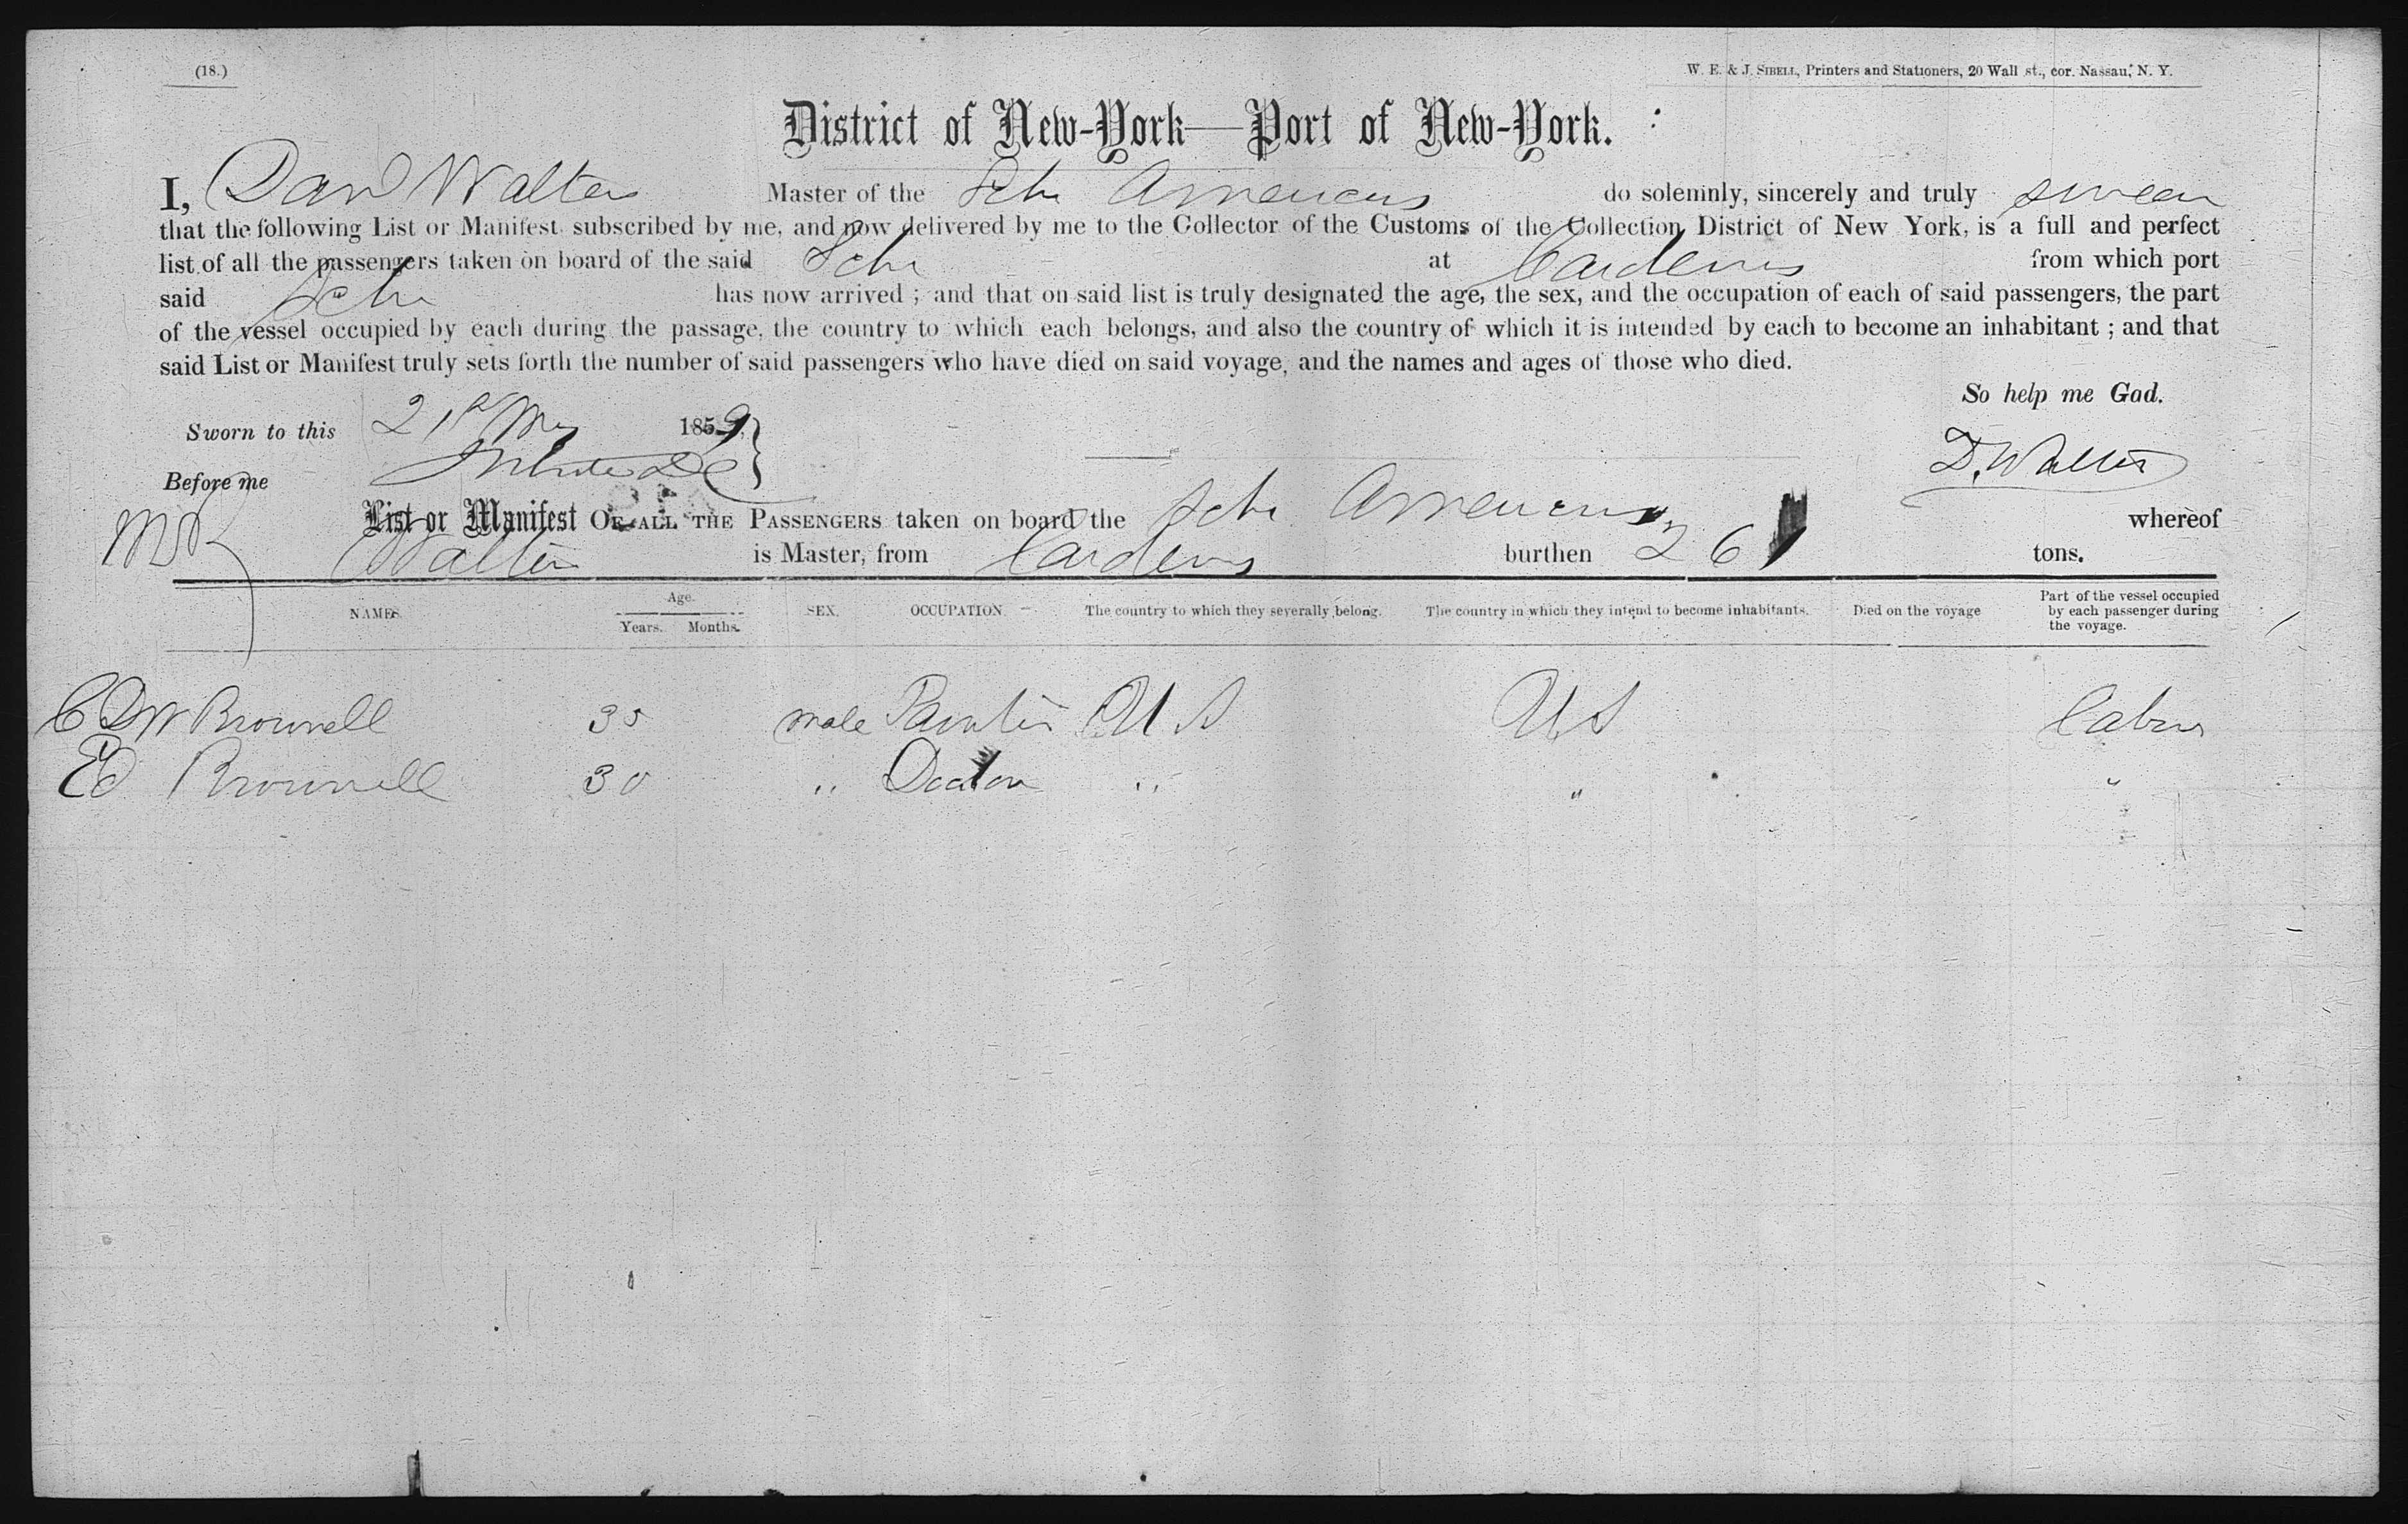 (18.)
W. E. & J. SIBELL, Printers and Stationers, 20 Wall st., cor. Nassau, N. Y.
District of New-York—Port of New-York.
I, Walter Master of the Schr Americus do solemnly, sincerely and truly swear
that the following List or Manifest subscribed by me, and now delivered by me to the Collector of the Customs of the Collection District of New York, is a full and perfect
list of all the passengers taken on board of the said Schr at Cardenas from which port
said Schr has now arrived ; and that on said list is truly designated the age, the sex, and the occupation of each of said passengers, the part
of the vessel occupied by each during the passage, the country to which each belongs, and also the country of which it is intended by each to become an inhabitant ; and that
said List or Manifest truly sets forth the number of said passengers who have died on said voyage, and the names and ages of those who died.
So help me God.
Sworn to this 21st May 1859,
D. Walter
Before me
List or Manifest OF ALL THE PASSENGERS taken on board the Schr Americus whereof
Walter is Master, from Cardenas burthen 261 tons.
NAMES. Age. Years. Months. SEX. OCCUPATION. The country to which they severally belong. The country in which they intend to become inhabitants. Died on the voyage Part of the vessel occupied by each passenger during the voyage.
C D W Brownell 35 male Painter U S U S Cabin
Ed Brownell 30 " Doctor " " "